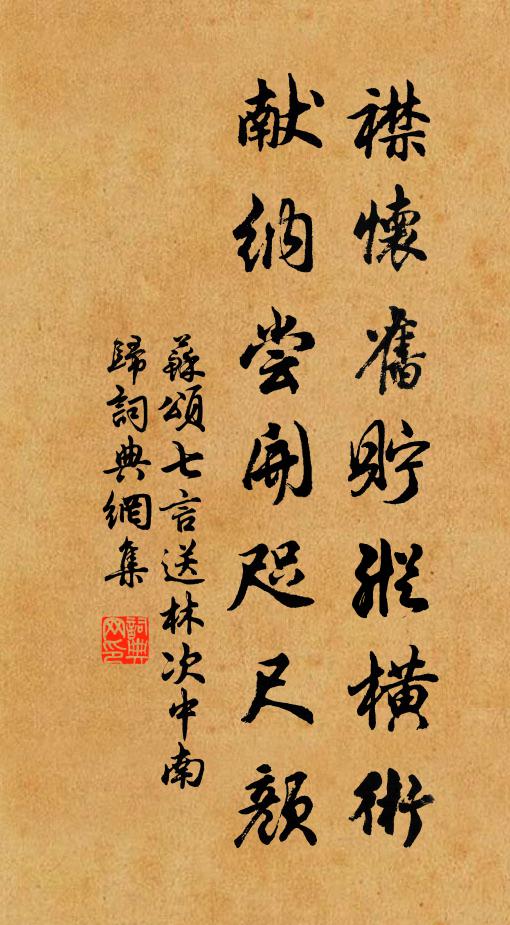 襟懷舊貯縱橫術
献纳尝開咫尺顏
蘇頌七言送林次中南
歸詞典網集
詞典网印